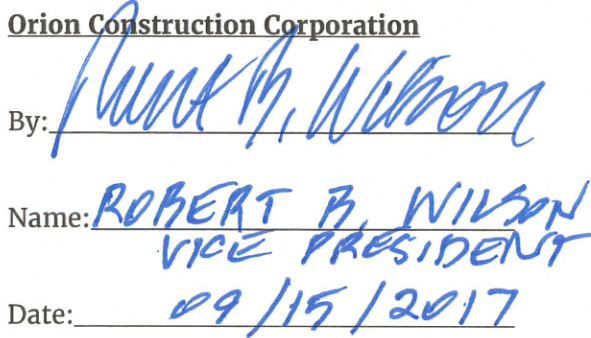 Orion Construction Corporation
By: Robert B. Wilson
Name: ROBERT B. WILSON
VICE PRESIDENT
Date: 09/15/2017